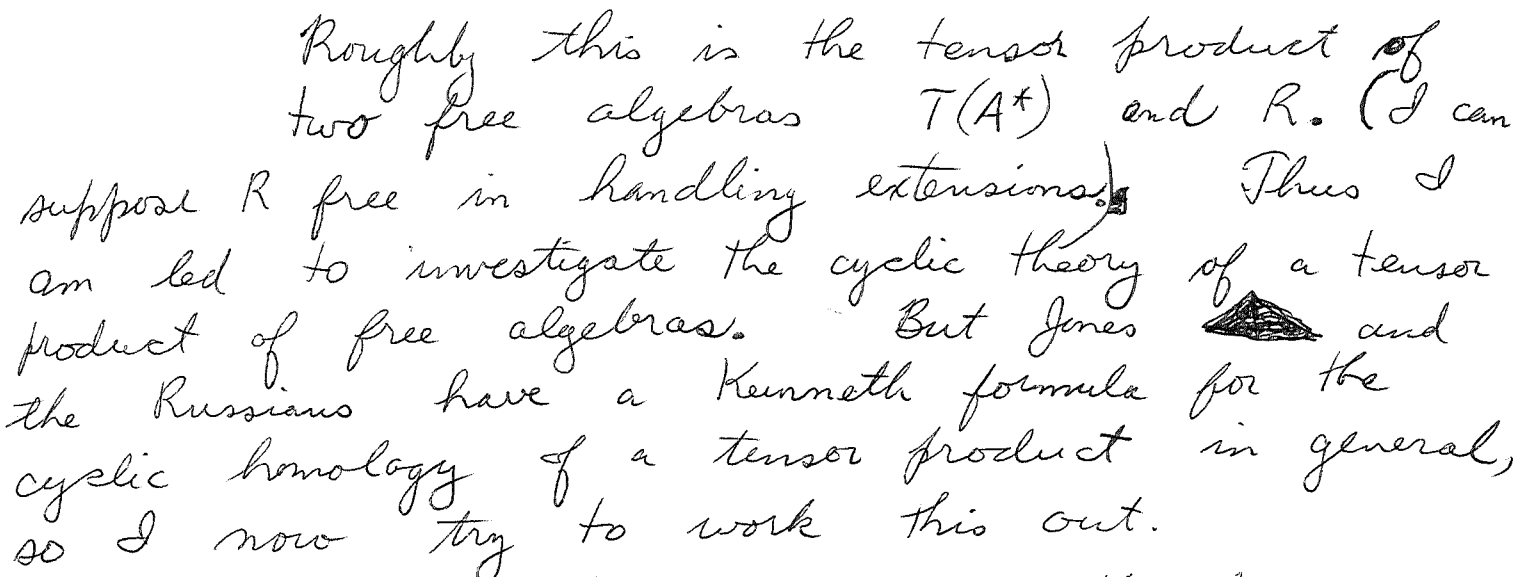 Roughly this is the tensor product of
two free algebras T(A*) and R. (I can
suppose R free in handling extensions.) Thus I
am led to investigate the cyclic theory of a tensor
product of free algebras. But Jones and
the Russians have a Kunneth formula for the
cyclic homology of a tensor product in general,
so I now try to work this out.